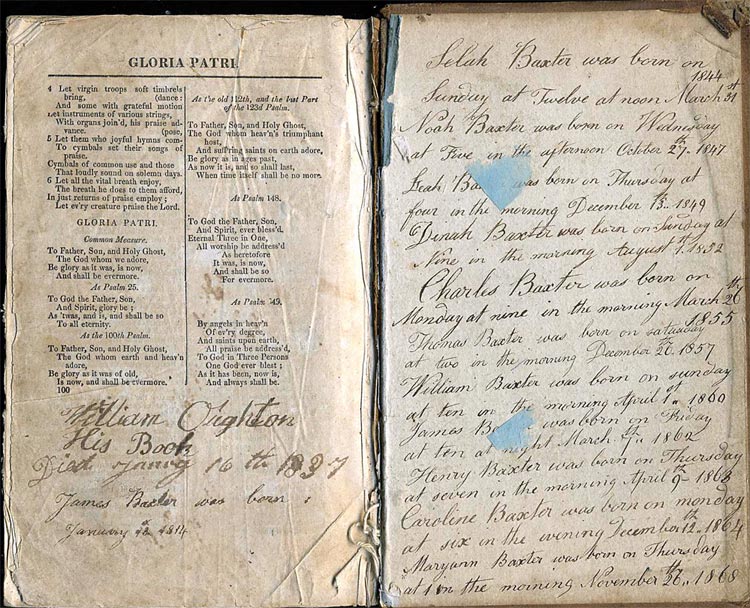 GLORIA PATRI.
4 Let virgin troops soft timbrels
bring, (dance:
And some with grateful motion
Let instruments of various strings,
With organs join'd, his praise ad-
vance. (pose,
5 Let them who joyful hymns com-
To cymbals set their songs of
praise.
Cymbals of common use and those
That loudly sound on solemn days.
6 Let all the vital breath enjoy,
The breath he does to them afford,
In just returns of praise employ;
Let ev'ry creature praise the Lord.
GLORIA PATRI.
Common Measure.
To Father, Son, and Holy Ghost,
The God whom we adore,
Be glory as it was, is now,
And shall be evermore.
As Psalm 25.
To God the Father, Son,
And Spirit, glory be;
As 'twas, and is, and shall be so
To all eternity.
As the 100th Psalm.
To Father, Son, and Holy Ghost,
The God whom earth and heav'n
adore,
Be glory as it was of old,
Is now, and shall be evermore.
100
As the old 112th, and the last Part
of the 123d Psalm.
To Father, Son, and Holy Ghost,
The God whom heav'n's triumphant
host,
And suff'ring saints on earth adore,
Be glory as in ages past,
As now it is, and so shall last,
When time itself shall be no more.
As Psalm 148.
To God the Father, Son,
And Spirit, ever bless'd,
Eternal Three in One,
All worship be address'd
As heretofore
It was, is now,
And shall be so
For evermore.
As Psalm 149.
By angels in heav'n
Of ev'ry degree,
And saints upon earth,
All praise be address'd,
To God in Three Persons
One God ever blest;
As it has been, now is,
And always shall be.
William Oughton
His Book
Died 16 th 1837
James Baxter was born :
January 1814
Selah Baxter was born on
1844
Sunday at Twelve at noon March 31st
Noah Baxter was born on Wednesday
at Five in the afternoon October 27th. 1847
Leah Ba was born on Thursday at
four in the morning December 13th 1849
Dinah Baxter was born on Sunday at
Nine in the morning August 1852
Charles Baxter was born on
Monday at nine in the morning March 26th
1855
Thomas Baxter was born on Saturday
at two in the morning December 26th. 1857
William Baxter was born on sunday
at ten in the morning April 1st. 1860
James Ba was born on Friday
at ten at night March 7th. 1862
Henry Baxter was born on Thursday
at seven in the morning April 9th 1863
Caroline Baxter was born on monday
at six in the evening December 12th. 1864
Maryann Baxter was born on Thursday
at 1 in the morning November 26th. 1868